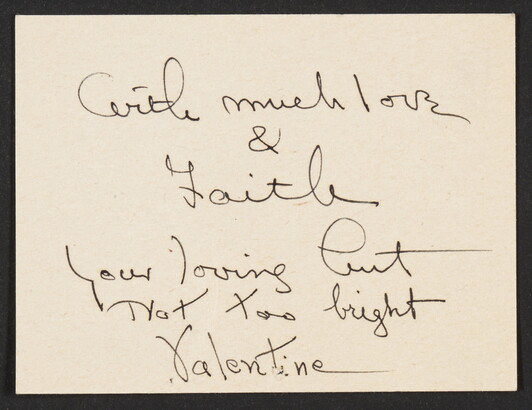 With much love
&
Faith
Your loving but
Not too bright
Valentine